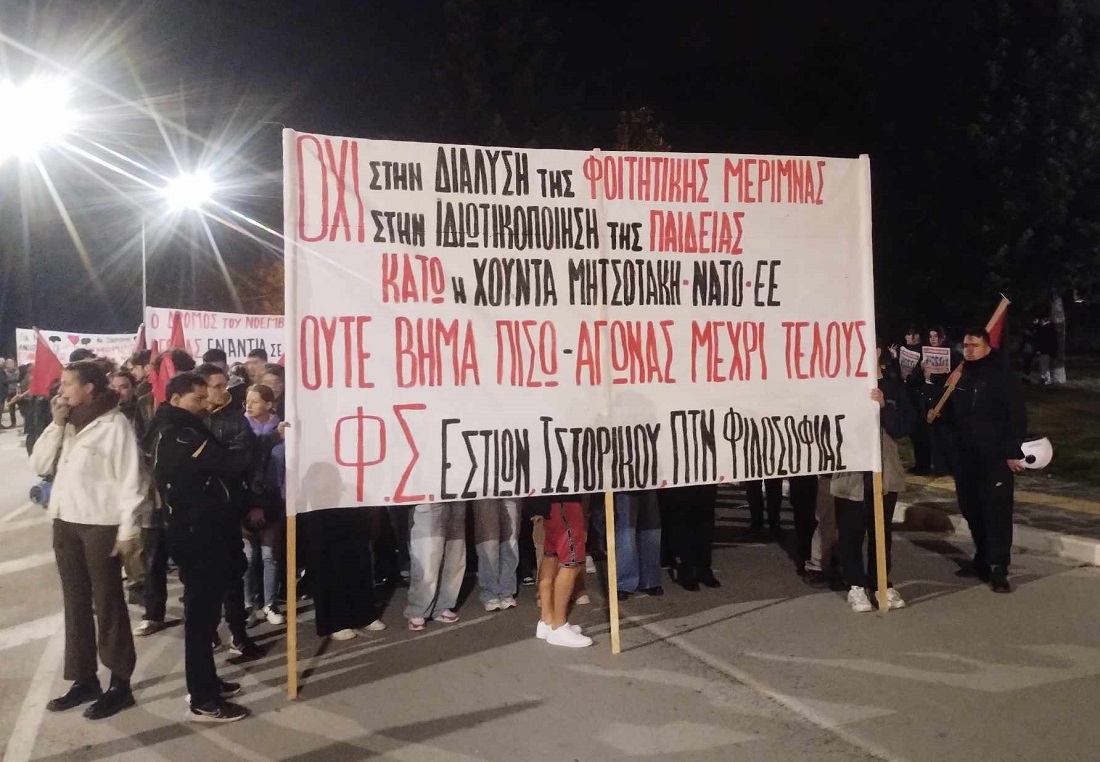 ΟΧΙ ΣΤΗΝ ΔΙΑΛΥΣΗ ΤΗΣ ΦΟΙΤΗΤΙΚΗΣ ΜΕΡΙΜΝΑΣ
ΣΤΗΝ ΙΔΙΩΤΙΚΟΠΟΙΗΣΗ ΤΗΣ ΠΑΙΔΕΙΑΣ
ΚΑΤΩ Η ΧΟΥΝΤΑ ΜΗΤΣΟΤΑΚΗ·ΝΑΤΟ·ΕΕ
ΟΥΤΕ ΒΗΜΑ ΠΙΣΩ-ΑΓΩΝΑΣ ΜΕΧΡΙ ΤΕΛΟΥΣ
Φ.Σ. ΕΣΤΙΩΝ, ΙΣΤΟΡΙΚΟΥ, ΠΤΝ, ΦΙΛΟΣΟΦΙΑΣ
Ο ΔΡΟΜΟΣ ΤΟΥ ΝΟΕΜΒ
ΕΝΑΝΤΙΑ ΣΕ